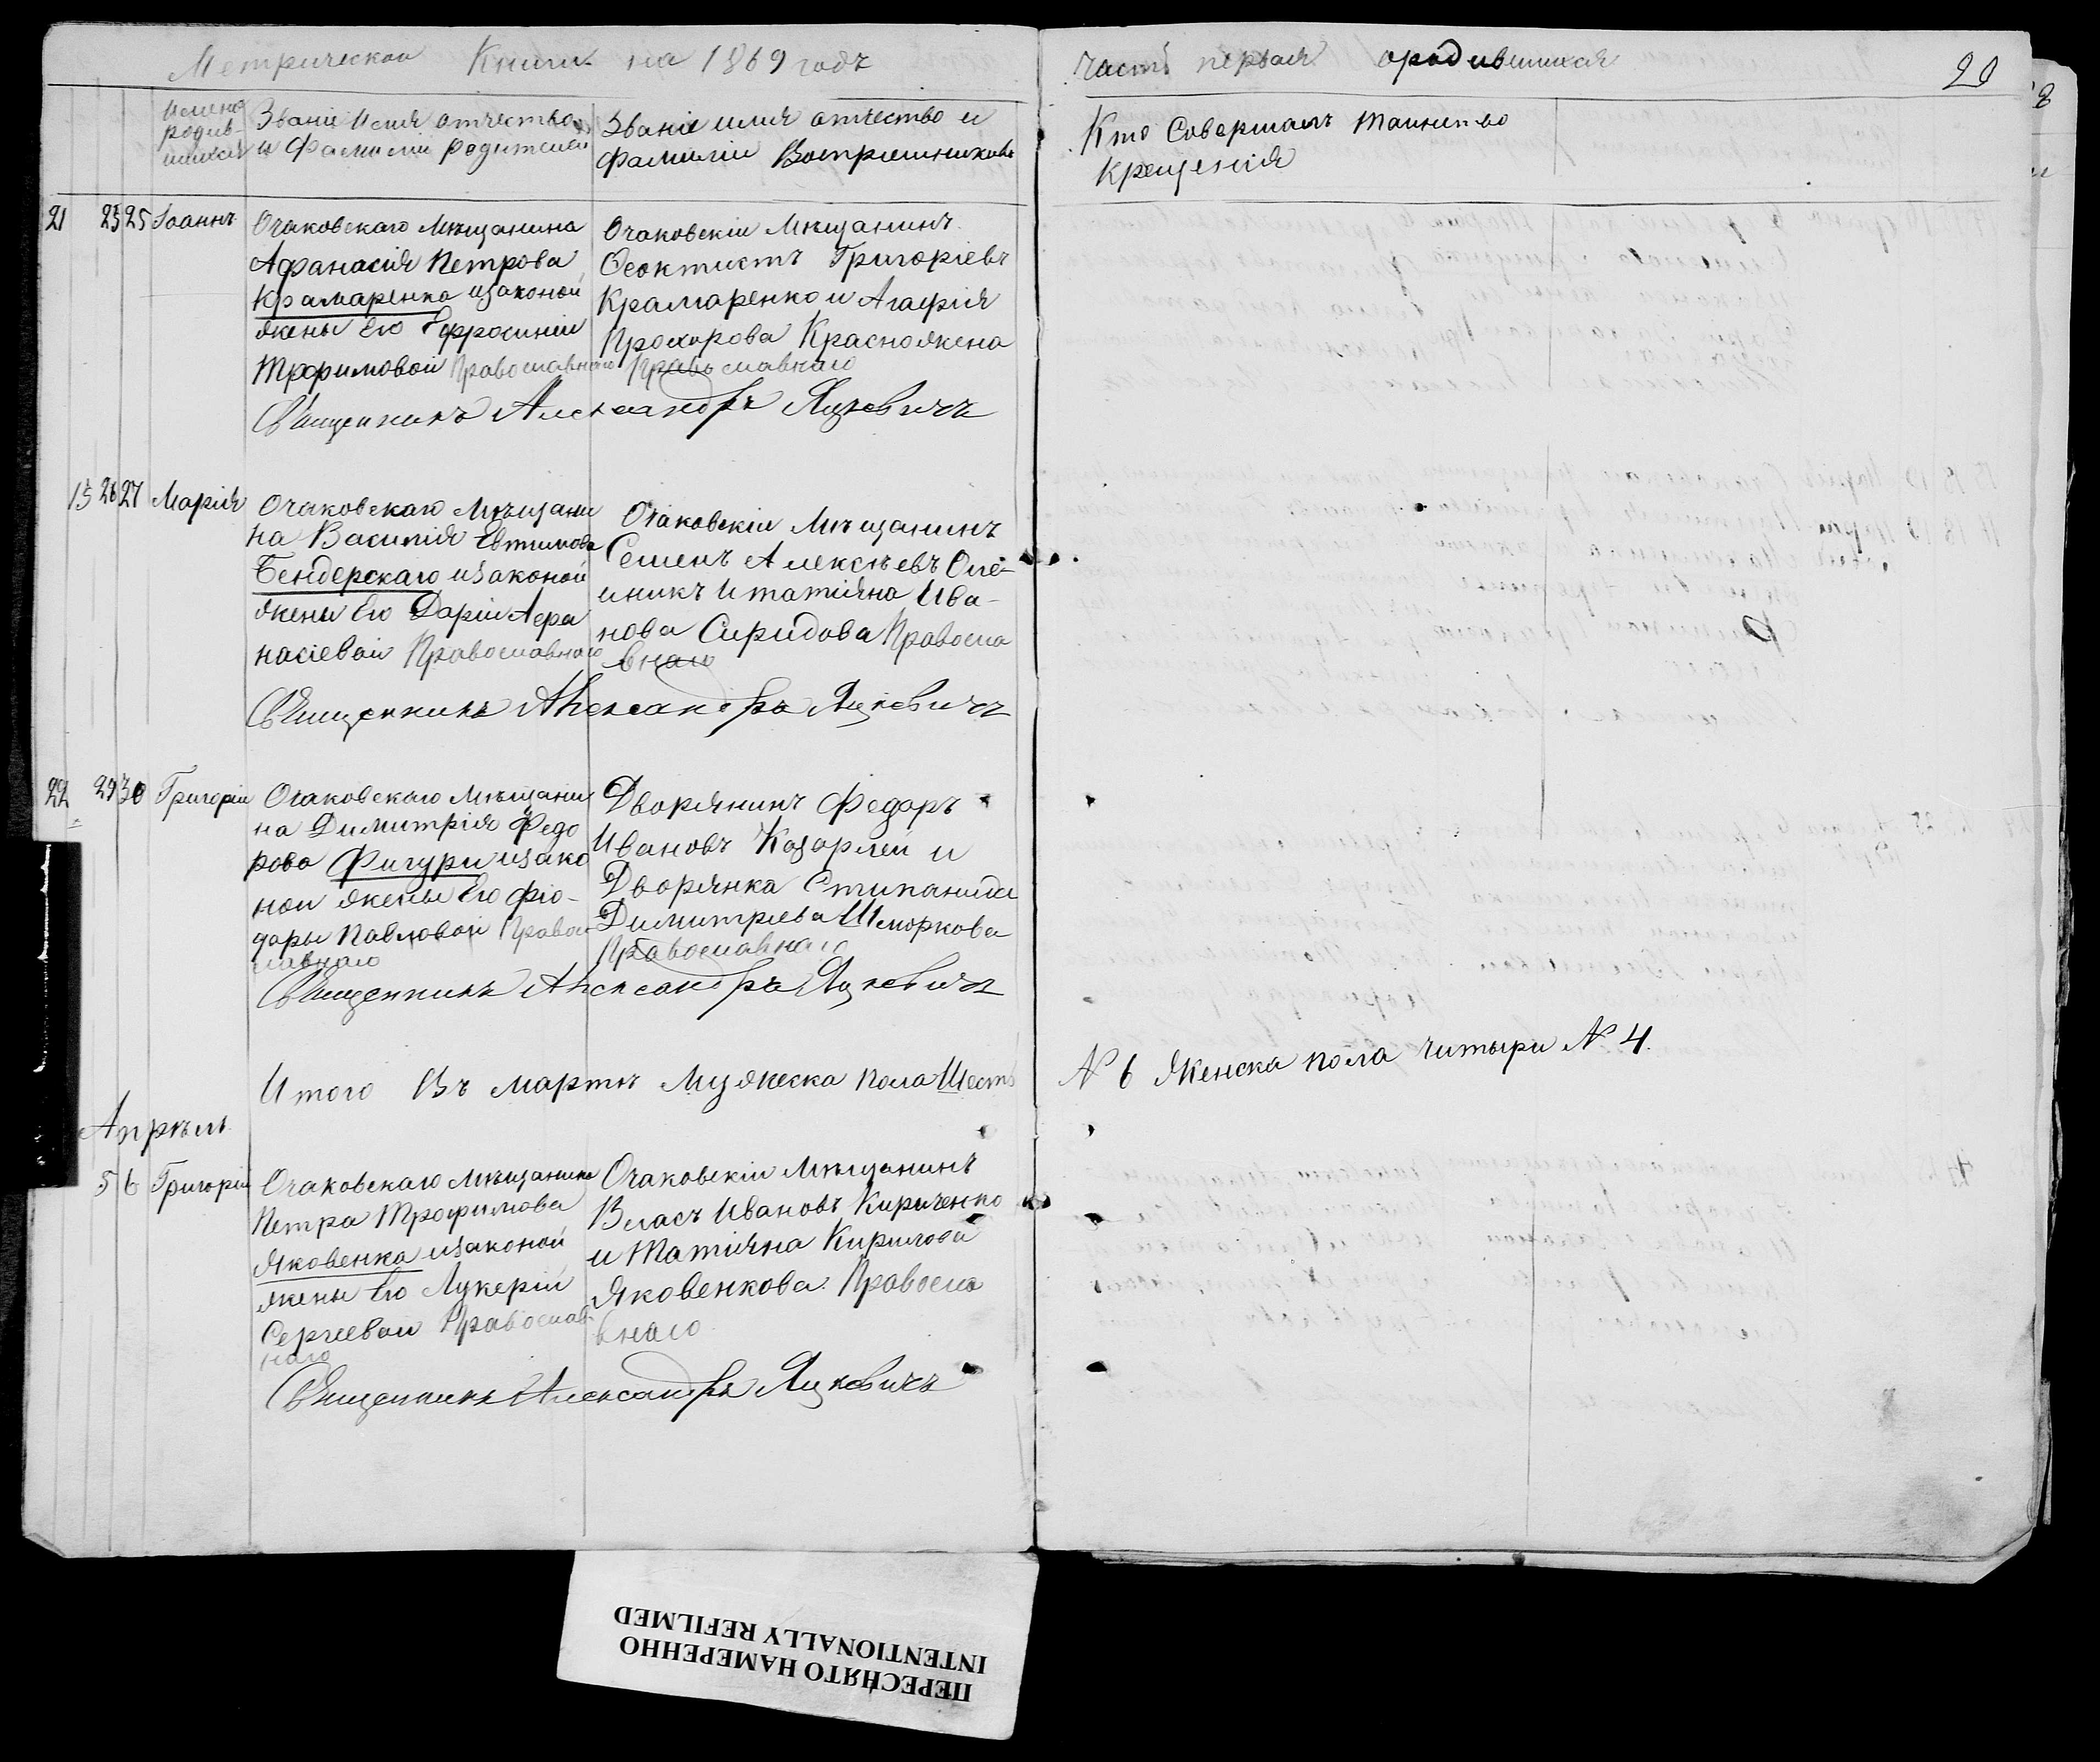 Метрической Книги на 1869 годъ
часть первая ородившихся
20
Имена родив-шихся
Званіе Имя отчество и Фамиліи родителей
Званіе имя отчество и фамиліи Воспріемниковъ
Кто Совершалъ таинство
Крещенія
21 23 25 Іоаннъ
Очаковскаго Мѣщанина
Афанасія Петрова
Крамаренка изаконой
жены Его Ефросиніи
Трофимовой Православнаго
Очаковскіи Мѣщанинъ
Феоктистъ Григоріевъ
Крамаренко и Агафія
Прохорова Красножена
Православнаго
Священникъ Александръ Яцкевичъ
15 26 27 Марія
Очаковскаго Мѣщани
на Василія Евтимова
Бендерскаго изаконой
жены Его Даріи Афа
насіевой Православнаго
Очаковскіи Мѣщанинъ
Семенъ Алексѣевъ Олѣ-
иникъ И татіяна Ива-
нова Сиридова Правосла
внаго
Священникъ Александръ Яцкевичъ
22 29 30 Григоріи
Очаковскаго Мѣщани
на Димитрія Федо
рова Фигури изако
нои жены Его Фіо-
доры Павловой Правос
лавнаго
Дворянинъ Федоръ
Ивановъ Казарлеи и
Дворянка Стипанида
Димитріева Шморкова
Православнаго
Священникъ Александръ Яцкевичъ
Итого Въ мартѣ Мужеска пола Шесть
№ 6 Женска пола читыри № 4.
Апрѣль
5 6 Григоріи
Очаковскаго Мѣщанина
Петра Трофимова
Яковенка изаконой
жены Его Лукеріи
Сергеевои Православ
наго
Очаковскіи Мѣщанинъ
Власъ Ивановъ Кириченко
и Татіяна Кирилова
Яковенкова Правосла
внаго
Священникъ Александръ Яцкевичъ
ПЕРЕСНЯТО НАМЕРЕННО
INTENTIONALLY REFILMED